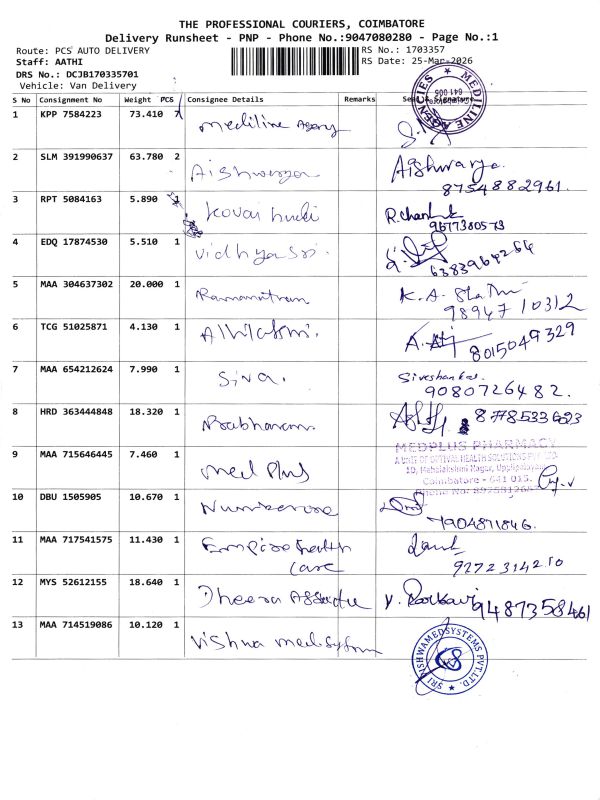 THE PROFESSIONAL COURIERS, COIMBATORE
Delivery Runsheet - PNP - Phone No.:9047080280 - Page No.:1
Route: PCS AUTO DELIVERY
RS No.: 1703357
Staff: AATHI
RS Date: 25-Mar-2026
DRS No.: DCJB170335701
Vehicle: Van Delivery
S No Consignment No Weight PCS Consignee Details Remarks Seal & Signature
MEDILINE AGENCIES
641 005
1 KPP 7584223 73.410 7 Mediline Agency
2 SLM 391990637 63.780 2 Aishwarya Aishwarya.
8754882961.
3 RPT 5084163 5.890 Kovai
9677380573
4 EDQ 17874530 5.510 1 Vidhya Sri.
6383964264
5 MAA 304637302 20.000 1 K.A.
98947 10312
6 TCG 51025871 4.130 1
8015049329
7 MAA 654212624 7.990 1 Siva. Siveshankar.
9080726482.
8 HRD 363444848 18.320 1
9 MAA 715646445 7.460 1 Med Plus
MEDPLUS PHARMACY
A UNIT OF OPTIVAL HEALTH SOLUTIONS PVT LTD.
Mahalakshmi Nagar, Uppilipalayam
Coimbatore - 641 015.
Phone No:
10 DBU 1505905 10.670 1
7904871846.
11 MAA 717541575 11.430 1 Empire Health
Care
92723142 10
12 MYS 52612155 18.640 1 Dheera
9487358461
13 MAA 714519086 10.120 1 Vishwa Medsystem
SRI VISHWAMEDSYSTEMS PVT.LTD.